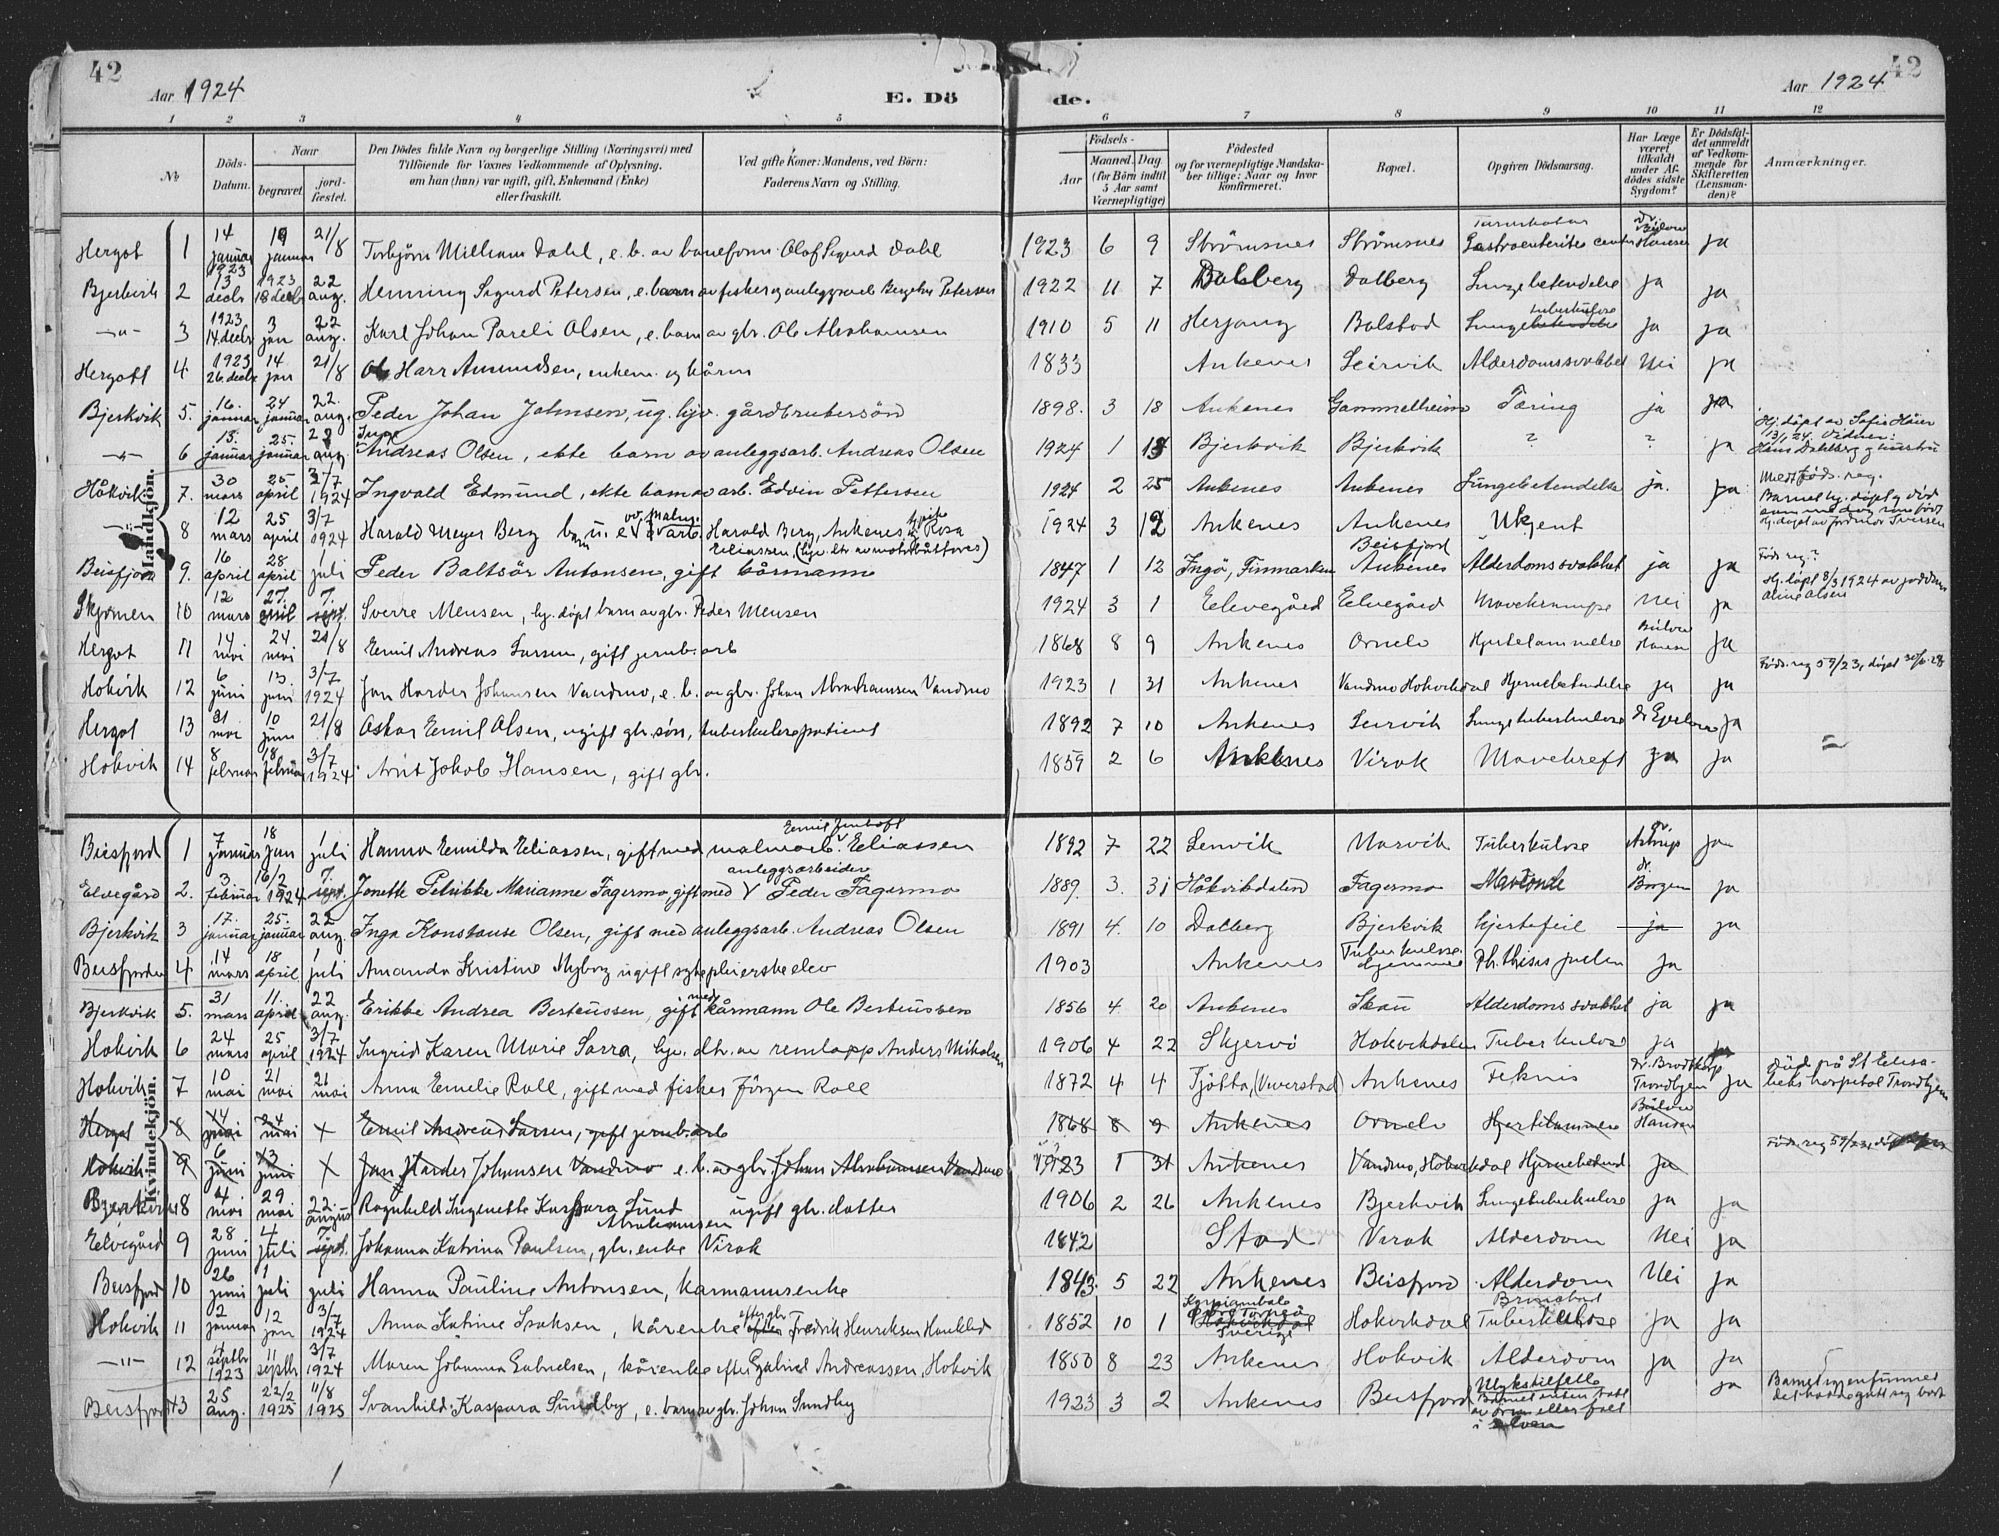 42
Aar 1924
E. Dö
de.
Aar 1924
42
1 2 3 4 5 6 7 8 9 10 11 12
№
Döds-Datum.
Naar
begravet.
jord-fæstet.
Den Dödes fulde Navn og borgerlige Stilling (Næringsvei) med
Tilföiende for Voxnes Vedkommende af Oplysning,
om han (hun) var ugift, gift, Enkemand (Enke)
eller fraskilt.
Ved gifte Koner: Mandens, ved Börn:
Faderens Navn og Stilling.
Födsels-
Aar
Maaned
Dag
(for Börn indtil
5 Aar samt
Værnepligtige)
Födested
og for værnepligtige Mandska-
ber tillige: Naar og hvor
konfirmeret.
Bopæl.
Opgiven Dödsaarsag.
Har Læge
været
tilkaldt
under Af-
dödes sidste
Sygdom?
Er Dödsfal-
det anmeldt
af Vedkom-
mende for
Skifteretten
(Lensman-
den)?
Anmærkninger.
Mandkjön.
Hergot 1 14 januar 19 januar 21/8 Torbjörn William Dahl, e. b. av baneform. Olaf Sigurd Dahl 1923 6 9 Strömsnes Strömsnes Gastroenterites dr Bülow Hansen ja
Bjerkvik 2 1923 13 decbr 1923 18 decb 22 aug. Henning Sigurd Petersen, e. barn av fisker og anleggsarb. Petersen 1922 11 7 Dalberg Dalberg Lungebetendelse ja ja
-"- 3 1923 14 decbr 3 jan 22 aug. Karl Johan Pareli Olsen, e. barn av gbr. Ole Abrahamsen 1910 5 11 Herjang Bolstad Lungetuberkulose ja ja
Hergott 4 1923 26 decbr 14 jan 21/8 Ole Harr Amundsen, enkem. og kårm 1833 Ankenes Leirvik Alderdomssvakhet Nei ja
Bjerkvik 5. 16. januar 24 januar 22. aug. Peder Johan Johnsen, ug. hjv. gårdbrukersön 1898. 3 18 Ankenes Gammelheim Tæring ja ja
-"- 6 13. januar 25. januar 22 aug Inge Andreas Olsen, ekte barn av anleggsarb. Andreas Olsen 1924 1 13 Bjerkvik Bjerkvik ? ? ja Hj. döpt av Sofie Haier 13/1 24. Vidner: Hans Dahlberg og hustru
Håkvik 7. 30 mars 25 april 3/7 1924 Ingvald Edmund, ekte barn av arb. Edvin Pettersen 1924 2 25 Ankenes Ankenes Lungebetendelse ja. ja
-"- 8 12 mars 25 april 3/7 1924 Harald Meyer Berg barn u. e. av malm arb. Harald Berg, Ankenes og Rosa Eliassen 1924 3 12 Ankenes Ankenes Ukjent
Beisfjord 9. 16 april 28 april juli Peder Baltsär Antonsen, gift kårmann 1847 1 12 Ingö, Finmarken Beisfjord Ankenes Alderdomssvakhet ja ja
Skjomen 10 12 mars 27. april 7. sept. Sverre Mensen, hj. döpt barn av gbr. Peder Mensen 1924 3 1 Elvegård Elvegård Mavekrampe Nei ja Hj. döpt 8/3 1924 av jordem Aline Olsen
Hergot 11 14 mai 24 mai 21/8 Emil Andreas Larsen, gift jernb. arb 1868 8 9 Ankenes Ornelv Hjertelammelse Bülow Hansen ja
Hokvik 12 6 juni 13. juni 3/7 1924 Jan Harder Johansen Vandmo, e. b. av gbr. Johan Abrahamsen Vandmo 1923 1 31 Ankenes Vandmo Hokvikdal Hjernebetendelse ja ja Föds. reg 59/23, döpt
Hergot 13 31 mai 10 juni 21/8 Oskar Emil Olsen, ugift gbr. sön, tuberkulosepatient 1892 7 10 Ankenes Leirvik Lungetuberkulose ja
Hokvik 14 8 februar 18 februar 3/7 1924 Arnt Jakob Hansen, gift gbr. 1859 2 6 Ankenes Virak Mavekreft ja ja
Kvindekjön.
Beisfjord 1 7 januar 18 jan 1 juli Hanna Emilda Eliassen, gift med malmarb. Emil Eliassen 1892 7 22 Lenvik Narvik Tuberkulose dr. Astrup ja
Elvegård 2. 3 februar 16/2 1924 7. sept. Jonette Petrikke Marianne Fagermo, gift med anleggsarbeider Peder Fagermo 1889. 3. 31 Håkvikdalen Fagermo dr. Borgen ja
Bjerkvik 3 17. januar 25. januar 22 aug. Inga Konstanse Olsen, gift med anleggsarb. Andreas Olsen 1891 4. 10 Dalberg Bjerkvik Hjertefeil ja ja
Beisfjorden 4 14 mars 18 april 1 juli Amanda Kristine Myborg ugift sykepleierske elev 1903 Ankenes Tuberkulosehjemmet Phthisis pulm ja
Bjerkvik 5. 31 mars 11. april 22 aug. Erikke Andrea Berteussen, gift med kårmann Ole Berteussen 1856 4. 20 Ankenes Skau Alderdomssvakhet ja ja
Hokvik 6 24 mars 25 april 3/7 1924 Ingrid Karen Marie Sarra, hjv. dtr. av remlapp Anders Mikalsen 1906 4 22 Skjervö Hokvikdalen Tuberkulose ja ja
Hokvik 7 10 mai 21 mai 21 mai Anna Emelie Roll, gift med fisker Jörgen Roll 1872 4 4 Tjötta, (Viverstad) Ankenes Trondhjem ja död på St Elisabeths hospital Trondhjem
Hergot 8 14 mai 24 mai x Emil Andreas Larsen, gift jernb. arb 1868 8 9 Ankenes Ornelv Hjertelammelse Bülow Hansen
Hokvik 9 6 juni 13 juni x Jan Harder Johansen Vandmo e. b. av gbr. Johan Abrahamsen Vandmo 1923 1 31 Ankenes Vandmo, Hokvikdal Hjernebetend. ja Föds reg 59/23,
Bjerkvik 8 4 mai 29 mai 22. august Ragnhild Ingenette Kaspara Lund ugift gbr. datter 1906 2 26 Ankenes Bjerkvik Lungetuberkulose ja ja
Elvegård 9 28 juni 4 juli 7. sept. Johanna Katrina Abrahamsen Paulsen, gbr. enke Virak 1842 Stod Virak Alderdom Nei ja
Beisfjord 10 26 juni 1 juli juli Hanna Pauline Antonsen, kårmannsenke 1843. 5 22 Ankenes Beisfjord Alderdom Nei ja
Hokvik 11 2 januar 12 jan 3/7 1924 Anna Katrine Isaksen, kårenke efter gbr Fredrik Henriksen Hauklid 1852 10 1 Sverige Hokvikdal Tuberkulose ja ja
-"- 12 4 septbr 1923 11 septbr 3/7 1924 Maren Johanna Gabrielsen, kårenke efter Gabriel Andreassen, Hokvik 1850 8 23 Ankenes Hokvik Alderdom ja ja
Beisfjord 13 25 aug. 22/2 1925 11/8 1925 Svanhild Kaspara Sundby, e. barn av gbr. Johan Sundby 1923 3 2 Ankenes Beisfjord Ulykstilfelle Barnet enten tatt av örn eller falt i elven ja Barnet igjenfunnet det hadde gått sig bort